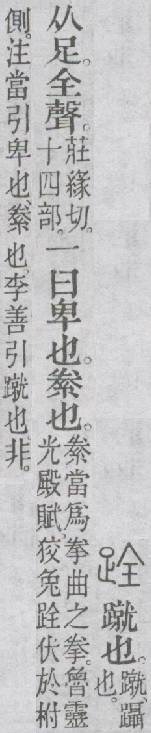 跧 蹴也。蹴、躡也。
从足。全聲。莊緣切。十四部。一曰卑也。絭也。絭當爲拳曲之拳。魯靈光殿賦。狡兔跧伏於柎
側。注當引卑也、絭也。李善引蹴也非。